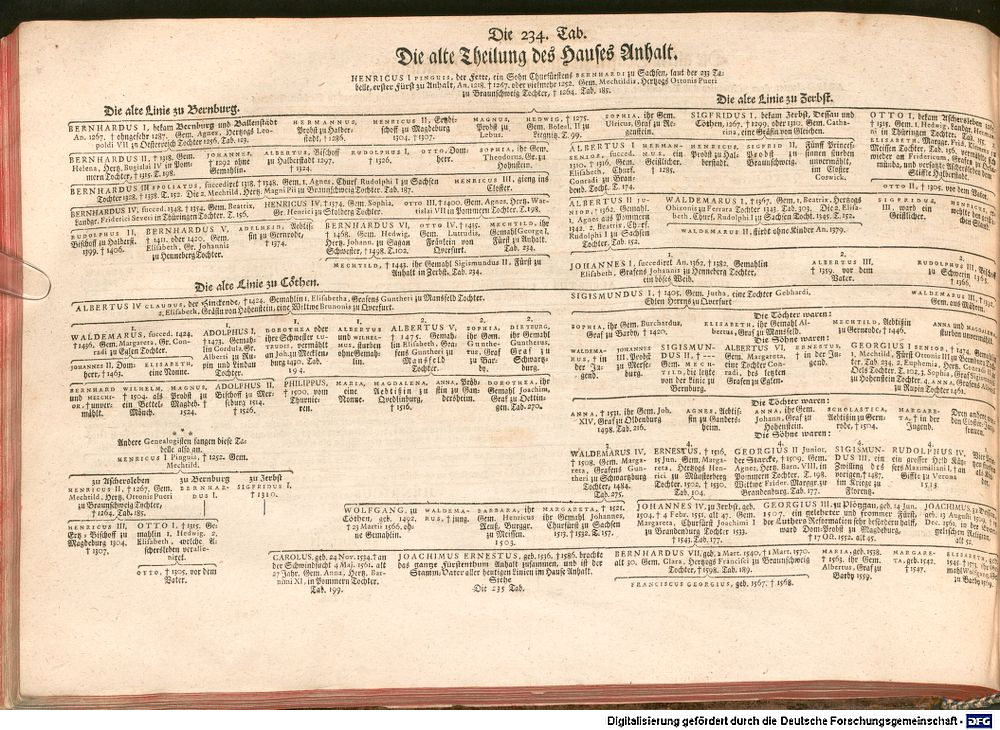 Die 234. Tab.
Die alte Theilung des Hauses Anhalt.
HENRICUS I PINGUIS, der Fette, ein Sohn Churfürstens BERNHARDI zu Sachsen, laut der 233 Ta-
belle, erster Fürst zu Anhalt, An. 1218. † 1267. oder vielmehr 1252. Gem. Mechtildis, Hertzogs Ottonis Pueri
zu Braunschweig Tochter, † 1264. Tab. 185.
Die alte Linie zu Bernburg.
BERNHARDUS I, bekam Bernburg und Ballenstädt
An. 1267, † ohngefehr 1287. Gem. Agnes, Hertzogs Leo-
poldi VII zu Oesterreich Tochter 1256, Tab. 129.
HERMANNUS,
Probst zu Halber-
stadt, † 1286.
HENRICUS II, Ertzbi-
schoff zu Magdeburg
1304. † 1307.
MAGNUS,
Probst zu
Lebus.
HEDWIG, † 1275.
Gem. Bolesl. II zu
Liegnitz T. 90.
SOPHIA, ihr Gem.
Ulricus, Graf zu Re-
genstein.
BERNHARDUS II, † 1318. Gem.
Helena, Hertz. Bugislai IV in Pom-
mern Tochter, † 1315. T. 198.
JOHANNES,
† 1292 ohne
Gemahlin.
ALBERTUS, Bischoff
zu Halberstadt 1297.
† 1324.
RUDOLPHUS I,
† 1326.
OTTO, Dom-
herr.
SOPHIA, ihr Gem.
Theodorus, Gr. zu
Hohnstein.
BERNHARDUS III SPOLIATUS, succediret 1318, † 1348. Gem. 1. Agnes, Churf. Rudolphi I zu Sachsen
Tochter 1328, † 1338. T. 152. Die 2. Mechtild, Hertz. Magni Pii zu Braunschweig Tochter. Tab. 187.
HENRICUS III, gieng ins
Closter.
BERNHARDUS IV, succed. 1348, † 1354. Gem. Beatrix,
Landgr. Friderici Severi in Thüringen Tochter. T. 156,
HENRICUS IV, † 1374. Gem. Sophia,
Gr. Henrici zu Stolberg Tochter.
OTTO III, † 1400. Gem. Agnes, Hertz. War-
tislai VII in Pommern Tochter. T. 198.
RUDOLPHUS II,
Bischoff zu Halberst.
1399, † 1406.
BERNHARDUS V,
† 1411. oder 1420. Gem.
Elisabeth, Gr. Johannis
zu Henneberg Tochter.
ADELHEID, Aebtis-
sin zu Gernrode,
† 1374.
BERNHARDUS VI,
† 1468. Gem. Hedwig,
Hertz. Johann. zu Sagan
Schwester, † 1498. T. 102.
OTTO IV, † 1415.
Gem. Lutrudis,
Fräulein von
Overfurt.
MECHTILD, ihr
Gemahl George I,
Fürst zu Anhalt.
Tab. 234.
MECHTILD, † 1443. ihr Gemahl Sigismundus II, Fürst zu
Anhalt in Zerbst, Tab. 234.
Die alte Linie zu Cöthen.
ALBERTUS IV CLAUDUS, der Hinckende, † 1424. Gemahlin 1. Elisabetha, Grafens Guntheri zu Mansfeld Tochter.
2, Elisabeth, Gräfin von Hohenstein, eine Wittwe Brunonis zu Overfurt.
WALDEMARUS, succed. 1424,
† 1436, Gem. Margareta, Gr. Con-
radi zu Eglen Tochter.
ADOLPHUS I,
† 1473. Gemah-
lin Cordula, Gr.
Alberti zu Ru-
pin und Lindau
Tochter.
1.
DOROTHEA oder
ihre Schwester LU-
TRUDIS, vermählt
an Joh. zu Mecklen-
burg 1430. Tab.
194.
1.
ALBERTUS
und WILHEL-
MUS, sturben
ohne Gemah-
lin.
2.
ALBERTUS V,
† 1475. Gemah-
lin Elisabeth, Gra-
fens Guntheri zu
Mansfeld
Tochter.
2.
SOPHIA,
ihr Gemahl
Gunthe-
rus, Graf
zu Bar-
by.
2.
DIETBURG,
ihr Gemahl
Guntherus,
Graf zu
Schwartz-
burg.
JOHANNES II, Dom-
herr, † 1463.
ELISABETH,
eine Nonne.
BERNHARD
und MELCHI-
OR, † unver-
mählt.
WILHELM,
ein Bettel-
Mönch.
MAGNUS,
† 1504. als Probst zu
Magdeb.
1524.
ADOLPHUS II,
Bischoff zu Mer-
seburg 1514.
† 1526.
PHILIPPUS,
† 1500. vom
Thurnie-
ren.
MARIA,
eine
Nonne.
MAGDALENA,
Aebtißin zu
Quedlinburg,
† 1516.
ANNA, Pröb-
stin zu Gan-
dersheim.
DOROTHEA, ihr
Gemahl Joachim,
Graf zu Oettin-
gen. Tab. 270.
* * *
Andere Genealogisten fangen diese Ta-
belle also an.
HENRICUS I Pinguis, † 1252. Gem.
Mechtild.
zu Aschersleben
HENRICUS II, † 1267. Gem.
Mechtild, Hertz. Ottonis Pueri
zu Braunschweig Tochter,
† 1264. Tab. 185.
zu Bernburg
BERNHAR-
DUS I.
zu Zerbst
SIGFRIDUS I,
† 1310.
HENRICUS III,
Ertz-Bischoff zu
Magdeburg 1304,
† 1307.
OTTO I, † 1315, Ge-
mahlin 1. Hedwig. 2.
Elisabeth, welche A-
scherßleben veralie-
niret.
OTTO, † 1305, vor dem
Vater.
Die alte Linie zu Zerbst.
SIGFRIDUS I, bekam Zerbst, Dessau und
Cöthen, 1267, † 1299, oder 1310. Gem. Catha-
rina, eine Gräfin von Gleichen.
ALBERTUS I
SENIOR, succed.
1310. † 1316. Gem.
Elisabeth, Churf.
Conradi zu Bran-
denb. Tocht. T. 174.
HERMAN-
NUS, ein
Geistlicher.
† 1285.
HENRICUS,
Probst zu Hal-
berstadt.
SIGFRID II,
Probst zu
Braunschweig.
Fünff Princes-
sinnen sturben
unvermählt,
im Closter
Coswick.
OTTO II, † 1305. vor dem Vater.
ALBERTUS II JU-
NIOR, † 1362. Gemahl.
1. Agnes aus Pommern
1342. 2. Beatrix, Churf.
Rudolphi I zu Sachsen
Tochter, Tab. 152.
WALDEMARUS I, † 1367, Gem. 1, Beatrix, Hertzogs
Obizonis zu Ferrara Tochter 1343. Tab. 303. Die 2. Elisa-
beth. Churf. Rudolphi I zu Sachsen Tocht. 1345. T. 152.
WALDEMARUS II, stirbt ohne Kinder An. 1379.
SIGFRIDUS,
III, ward ein
Geistlicher.
1.
JOHANNES I, succediret An. 1362. † 1382. Gemahlin
Elisabeth, Grafens Johannis zu Henneberg Tochter,
ein böses Weib.
2.
ALBERTUS III,
† 1359. vor dem
Vater.
2.
RUDOLPHUS III, Bischoff
zu Schwerin
† 1366.
SIGISMUNDUS I, † 1405, Gem. Jutha, eine Tochter Gebhardi,
Edlen Herrns zu Overfurt.
Die Töchter waren:
SOPHIA, ihr Gem. Burchardus,
Graf zu Barby, † 1420.
ELISABETH, ihr Gemahl Al-
bertus, Graf zu Mansfeld.
MECHTILD, Aebtißin
zu Gernrode, † 1446.
ANNA und MAGDALENA
sturben unvermählt.
Die Söhne waren:
WALDEMA-
RUS, † in
der Ju-
gend.
JOHANNES
III, Probst
zu Merse-
burg.
SIGISMUN-
DUS II, † ---
Gem. MECH-
TILD, die letzte
von der Linie zu
Bernburg.
ALBERTUS VI,
Gem. Margareta,
eine Tochter Con-
radi, des letzten
Grafen zu Eglen.
† in der Ju-
gend.
GEORGIUS I SENIOR, † 1474,
1, Mechtild, Fürst Ottonis III zu Bernburg
Tab. 234. 2, Euphemia, Hertz. Conradi
Oels Tochter, T. 102. 3. Sophia, Graf Sigismundi
zu Hohenstein Tochter. 4. Anna, Grafens
zu Rupin Tochter 1461.
Die Töchter waren:
ANNA, † 1531, ihr Gem. Joh.
XIV, Graf zu Oldenburg
1498. Tab. 216.
AGNES, Aebtis-
sin zu Ganders-
heim.
ANNA, ihr Gem.
Johann, Graf zu
Hohenstein.
SCHOLASTICA,
Aebtißin zu Gern-
rode, † 1504.
MARGARE-
TA, † in der
Jugend.
Die Söhne waren:
3.
WALDEMARUS IV,
† 1508, Gem. Marga-
reta, Grafens Gun-
theri zu Schwartzburg
Tochter, 1484.
Tab. 275.
4.
ERNESTUS, † 1516,
15 Jun. Gem. Marga-
reta, Hertzogs Hen-
rici zu Münsterberg
Tochter 1502, † 1530,
Tab. 104.
4.
GEORGIUS II Junior,
der Starcke, † 1509. Gem.
Agnes, Hertz. Barn. VIII, in
Pommern Tochter T. 198.
Wittwe Frider. Marggr. zu
Brandenburg. Tab. 177.
4.
SIGISMUN-
DUS III, ein
Zwilling des
vorigen, † 1487.
im Kriege zu
Florentz.
4.
RUDOLPHUS IV,
ein grosser Held Käy-
sers Maximiliani I, † an
Gifft zu Verona
1513.
WOLFGANG, zu
Cöthen, geb. 1492,
† 23 Martii 1566, oh-
ne Gemahlin.
WALDEMA-
RUS, † jung.
BARBARA, ihr
Gem. Henricus
Reuß, Burggr.
zu Meissen.
1503.
MARGARETA, † 1521.
ihr Gemahl Johannes,
Churfürst zu Sachsen
1513. † 1532, T. 157.
JOHANNES IV, zu Zerbst, geb.
1504. † 4 Febr. 1551. alt 47. Gem.
Margareta, Churfürst Joachimi I
zu Brandenburg Tochter 1533.
† 1543. Tab. 177.
GEORGIUS III, zu Plötzgau, geb. 14 Jun.
1507, ein gelehrter und frommer Fürst, so
der Lutheri Reformation sehr befördern halff,
ward Dom-Probst zu Magdeburg,
† 17 Oct. 1552, alt 45.
JOACHIMUS, zu Dessau,
CAROLUS, geb. 24 Nov. 1534, † an
der Schwindsucht 4 Maj. 1561. alt
27 Jahr. Gem. Anna, Hertz. Bar-
nimi XI, in Pommern Tochter.
Tab. 199.
JOACHIMUS ERNESTUS, geb. 1536, † 1586, brachte
das gantze Fürstenthum Anhalt zusammen, und ist der
Stamm-Vater aller heutigen Linien im Hause Anhalt.
Siehe
Die 235 Tab.
BERNHARDUS VII, geb. 2 Mart. 1540, † 1 Mart. 1570.
alt 30. Gem. Clara, Hertzogs Francisci zu Braunschweig
Tochter, † 1598. Tab. 189.
FRANCISCUS GEORGIUS, geb. 1567. † 1568.
MARIA, geb. 1538.
† 1563, ihr Gem.
Albertus, Graf zu
Barby 1559.
MARGARE-
TA, geb. 1541,
† 1547.
Digitalisierung gefördert durch die Deutsche Forschungsgemeinschaft - DFG